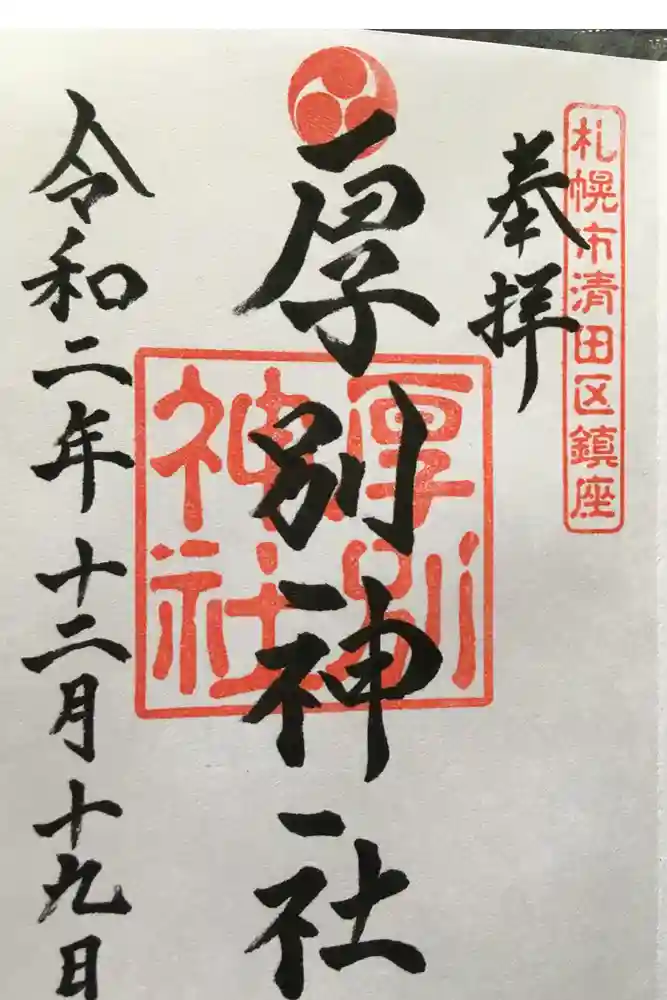 札幌市清田区鎮座
奉拝
厚別神社
厚別
神社
令和二年十二月十九日